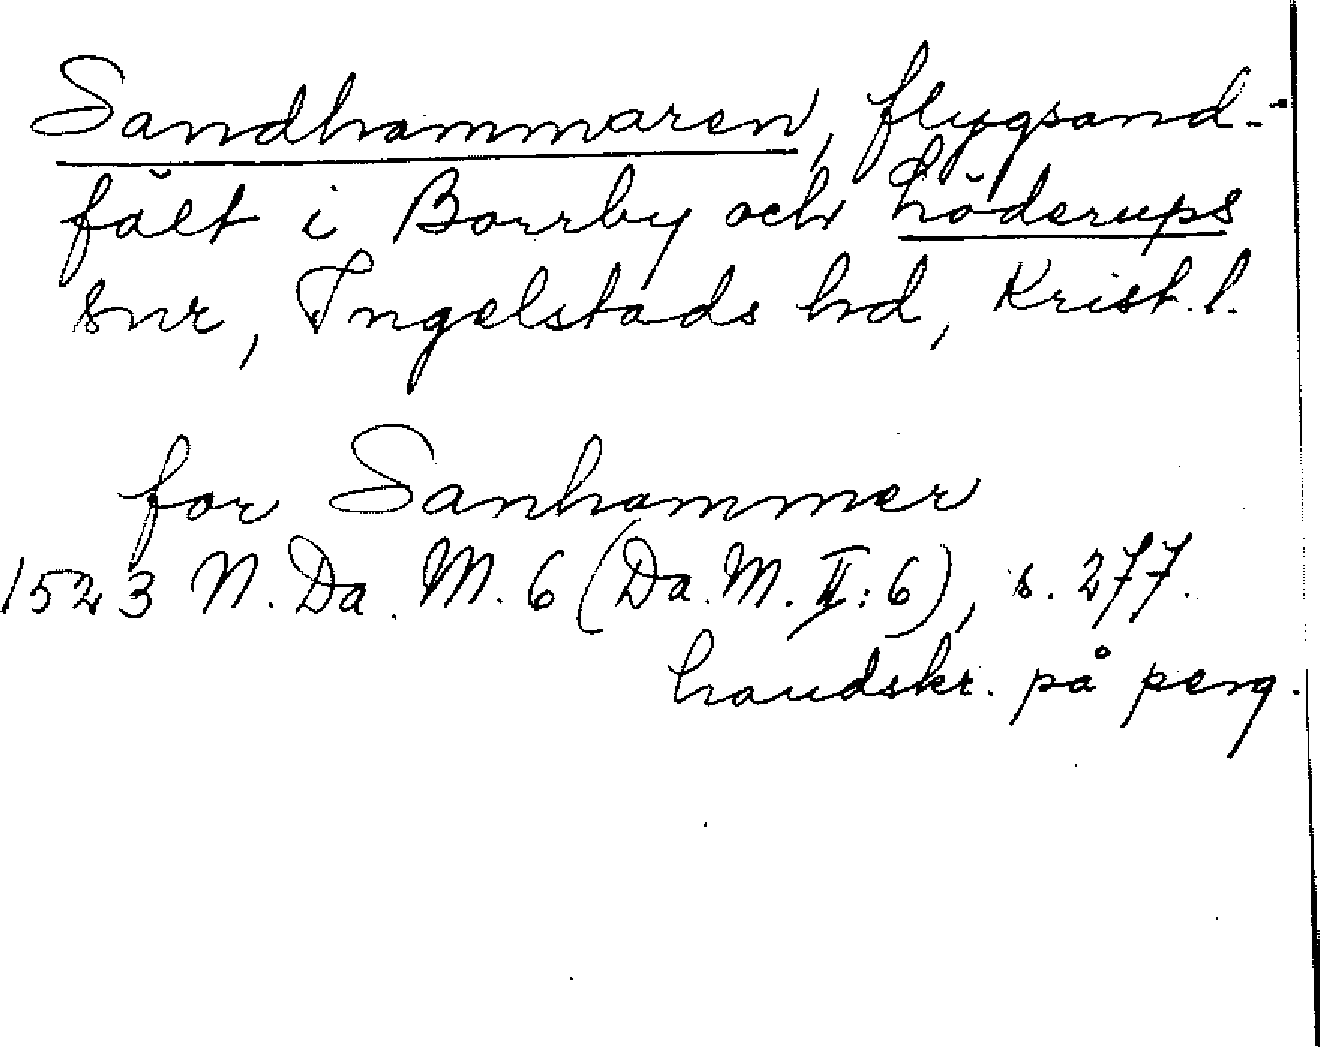 Sandhammaren, flygsand-
fält i Borrby och Löderups
snr, Ingelstads hd, Krist. l.
for Sanhammer
1523 N. Da. M. 6 (Da. M. II: 6), s. 277.
handskr. på perg.